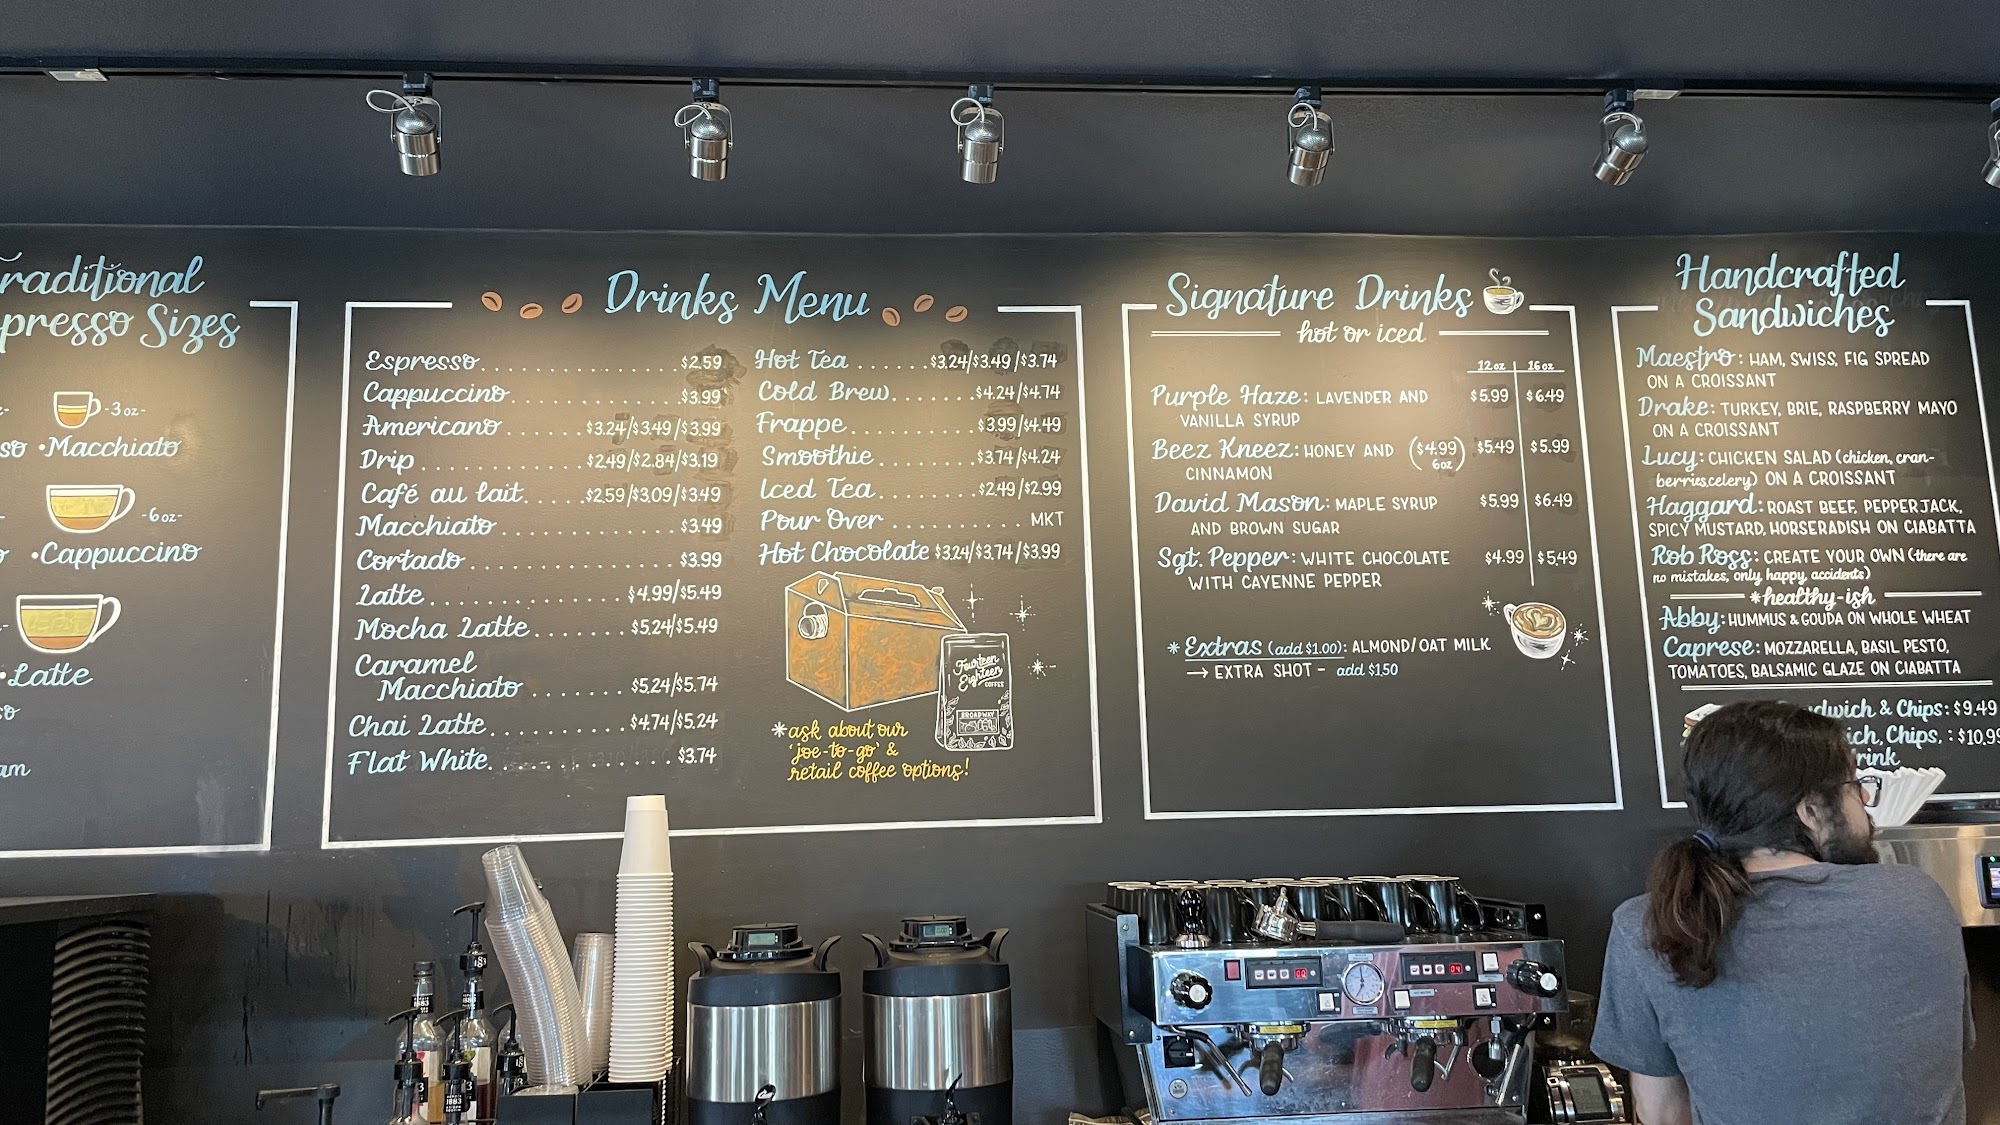 raditional
presso Sizes
-3oz-
so •Macchiato
-6oz-
•Cappuccino
•Latte
so
am
Drinks Menu
Espresso. . . . . . . . . . . . . . . . . . $2.59
Cappuccino. . . . . . . . . . . . . . . $3.99
Americano. . . . . . . $3.24/$3.49/$3.99
Drip . . . . . . . . . . . . . . $2.49/$2.84/$3.19
Café au lait. . . . . $2.59/$3.09/$3.49
Macchiato . . . . . . . . . . . . . . . . $3.49
Cortado . . . . . . . . . . . . . . . . . . $3.99
Latte . . . . . . . . . . . . . . . . $4.99/$5.49
Mocha Latte . . . . . . . $5.24/$5.49
Caramel
Macchiato . . . . . . . $5.24/$5.74
Chai Latte. . . . . . . . . . . $4.74/$5.24
Flat White. . . . . . . . . . . . . . $3.74
Hot Tea . . . . . . . $3.24/$3.49/$3.74
Cold Brew. . . . . . . . $4.24/$4.74
Frappe. . . . . . . . . . . . $3.99/$4.49
Smoothie. . . . . . . . . $3.74/$4.24
Iced Tea. . . . . . . . . . $2.49/$2.99
Pour Over . . . . . . . . . . . MKT
Hot Chocolate $3.24/$3.74/$3.99
Fourteen
Eighteen
COFFEE
BROADWAY
*ask about our
'joe-to-go' &
retail coffee options!
Signature Drinks
hot or iced
12oz 16oz
Purple Haze: LAVENDER AND $5.99 $6.49
VANILLA SYRUP
Beez Kneez: HONEY AND ($4.99 $5.49 $5.99
CINNAMON 6oz)
David Mason: MAPLE SYRUP $5.99 $6.49
AND BROWN SUGAR
Sgt. Pepper: WHITE CHOCOLATE $4.99 $5.49
WITH CAYENNE PEPPER
*Extras (add $1.00): ALMOND/OAT MILK
→ EXTRA SHOT - add $1.50
Handcrafted
Sandwiches
Maestro: HAM, SWISS, FIG SPREAD
ON A CROISSANT
Drake: TURKEY, BRIE, RASPBERRY MAYO
ON A CROISSANT
Lucy: CHICKEN SALAD (chicken, cran-
berries, celery) ON A CROISSANT
Haggard: ROAST BEEF, PEPPERJACK,
SPICY MUSTARD, HORSERADISH ON CIABATTA
Rob Ross: CREATE YOUR OWN (there are
no mistakes, only happy accidents)
*healthy-ish
Abby: HUMMUS & GOUDA ON WHOLE WHEAT
Caprese: MOZZARELLA, BASIL PESTO,
TOMATOES, BALSAMIC GLAZE ON CIABATTA
dwich & Chips: $9.49
ich, Chips, : $10.99
rink
1883
1883